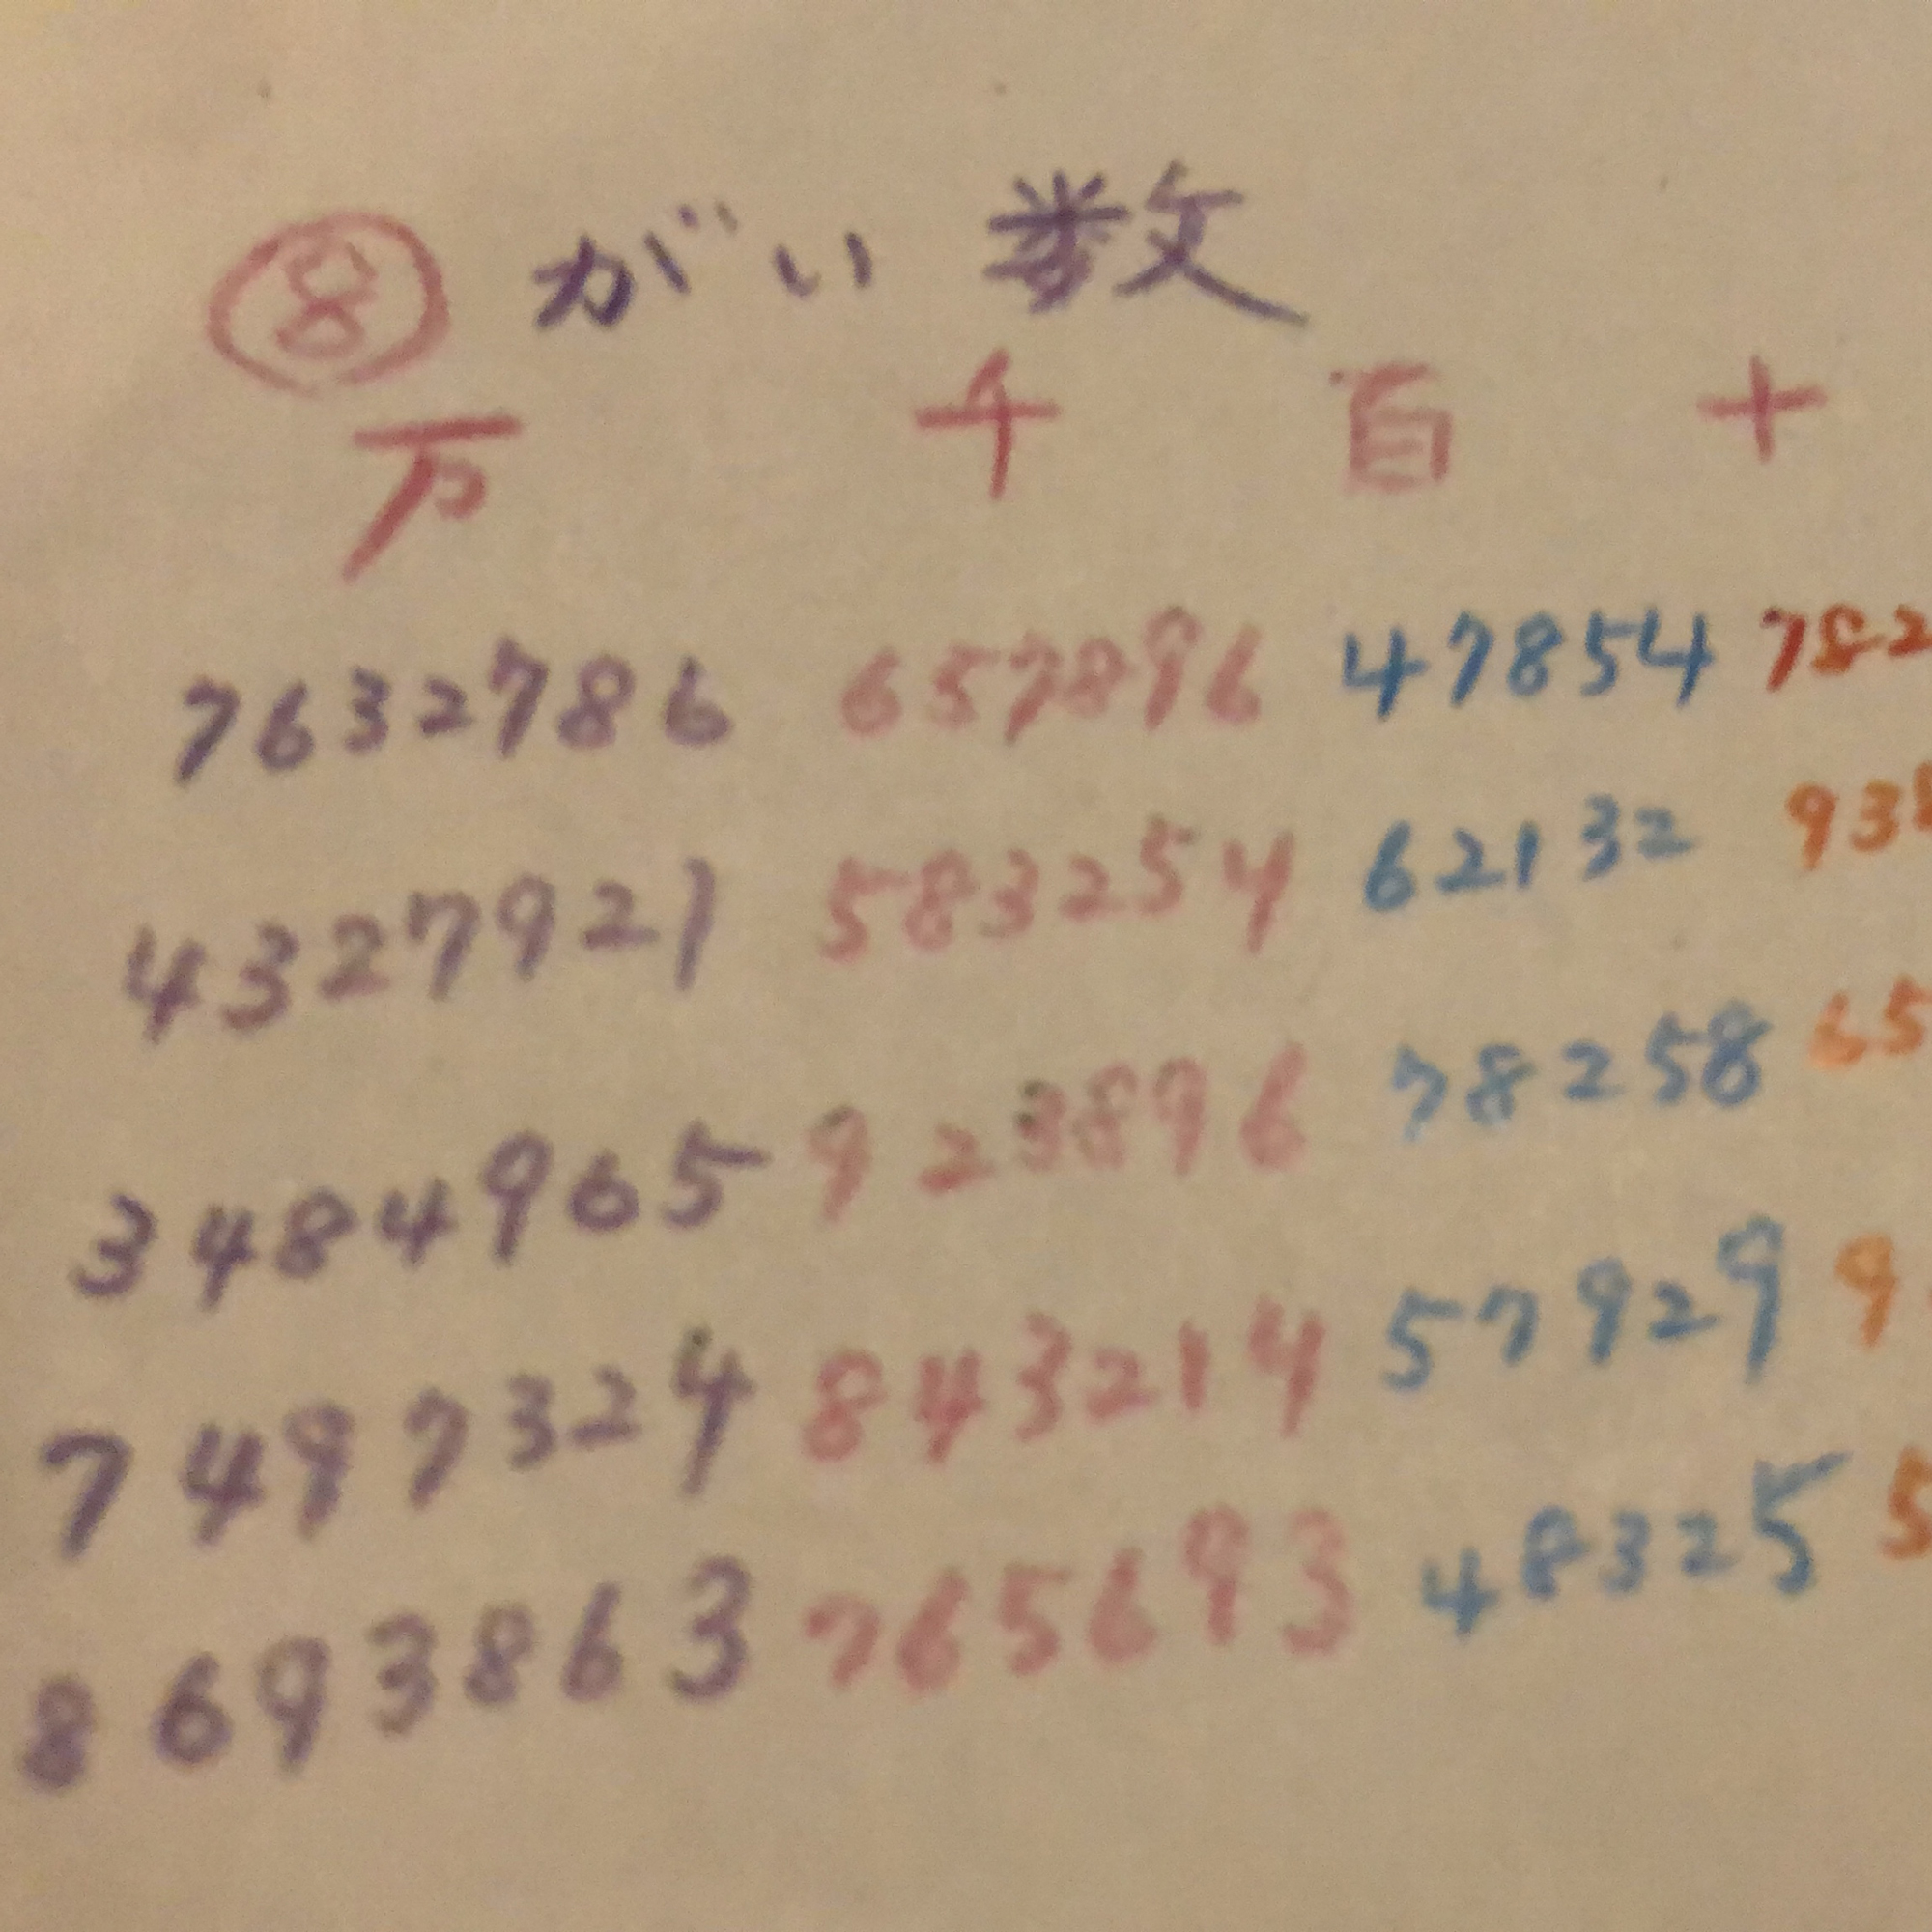 ⑧ がい数
万 千 百 十
7632786 657896 47854 782
4327921 583254 62132 938
3484965 923896 78258 65
7497324 843214 57929 9
8693863 765693 48325 5